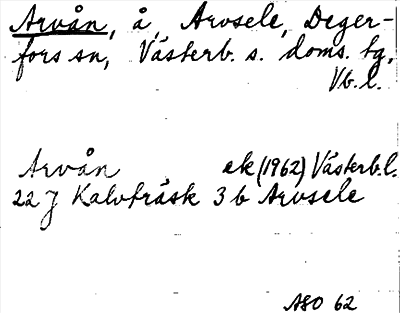 Arvån, å, Arvsele, Deger-
fors sn, Västerb. s. doms. tg,
Vb. l.
Arvån ek (1962) Västerb. l.
22 J Kalvträsk 3 b Arvsele
ASO 62